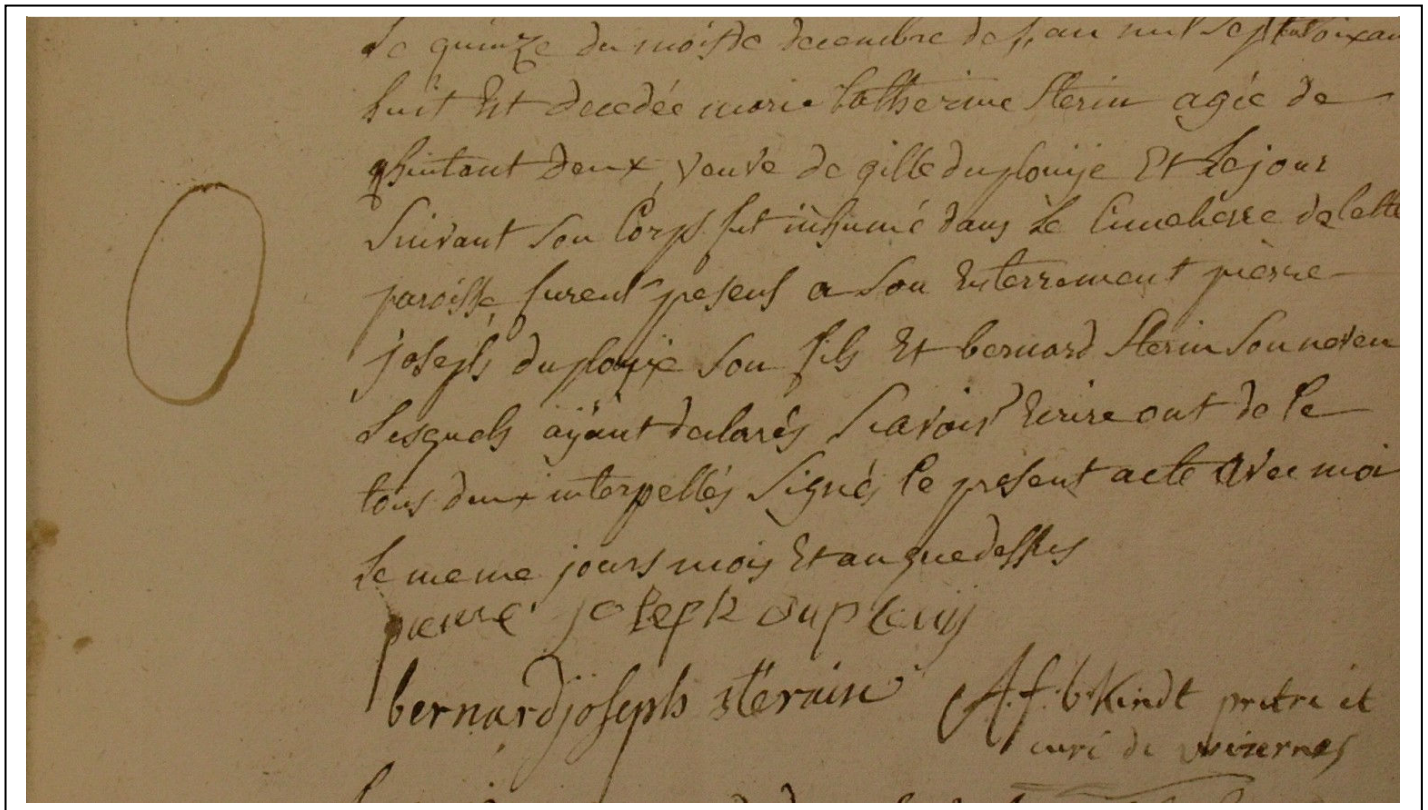 Le quinze du mois de decembre de l'an mil sept soixan
huit Est decedée marie Catherine Sterin agée de
deux, veuve de gille duplouÿe Et Le jour
Suivant son Corps fut inhumé dans Le Cimetiere de cette
paroisse, furent presens a son Enterrement pierre
joseph duplouÿe son fils Et bernard Sterin son neveu
Lesquels aÿant declarés Scavoir Ecrire ont de ce
tous deux interpellés Signés le present acte avec moi
Le meme jours mois Et an que dessus
pierre joseph duplouij
bernard joseph stérin
A. f. b. Kindt pretre et
curé de wizernes